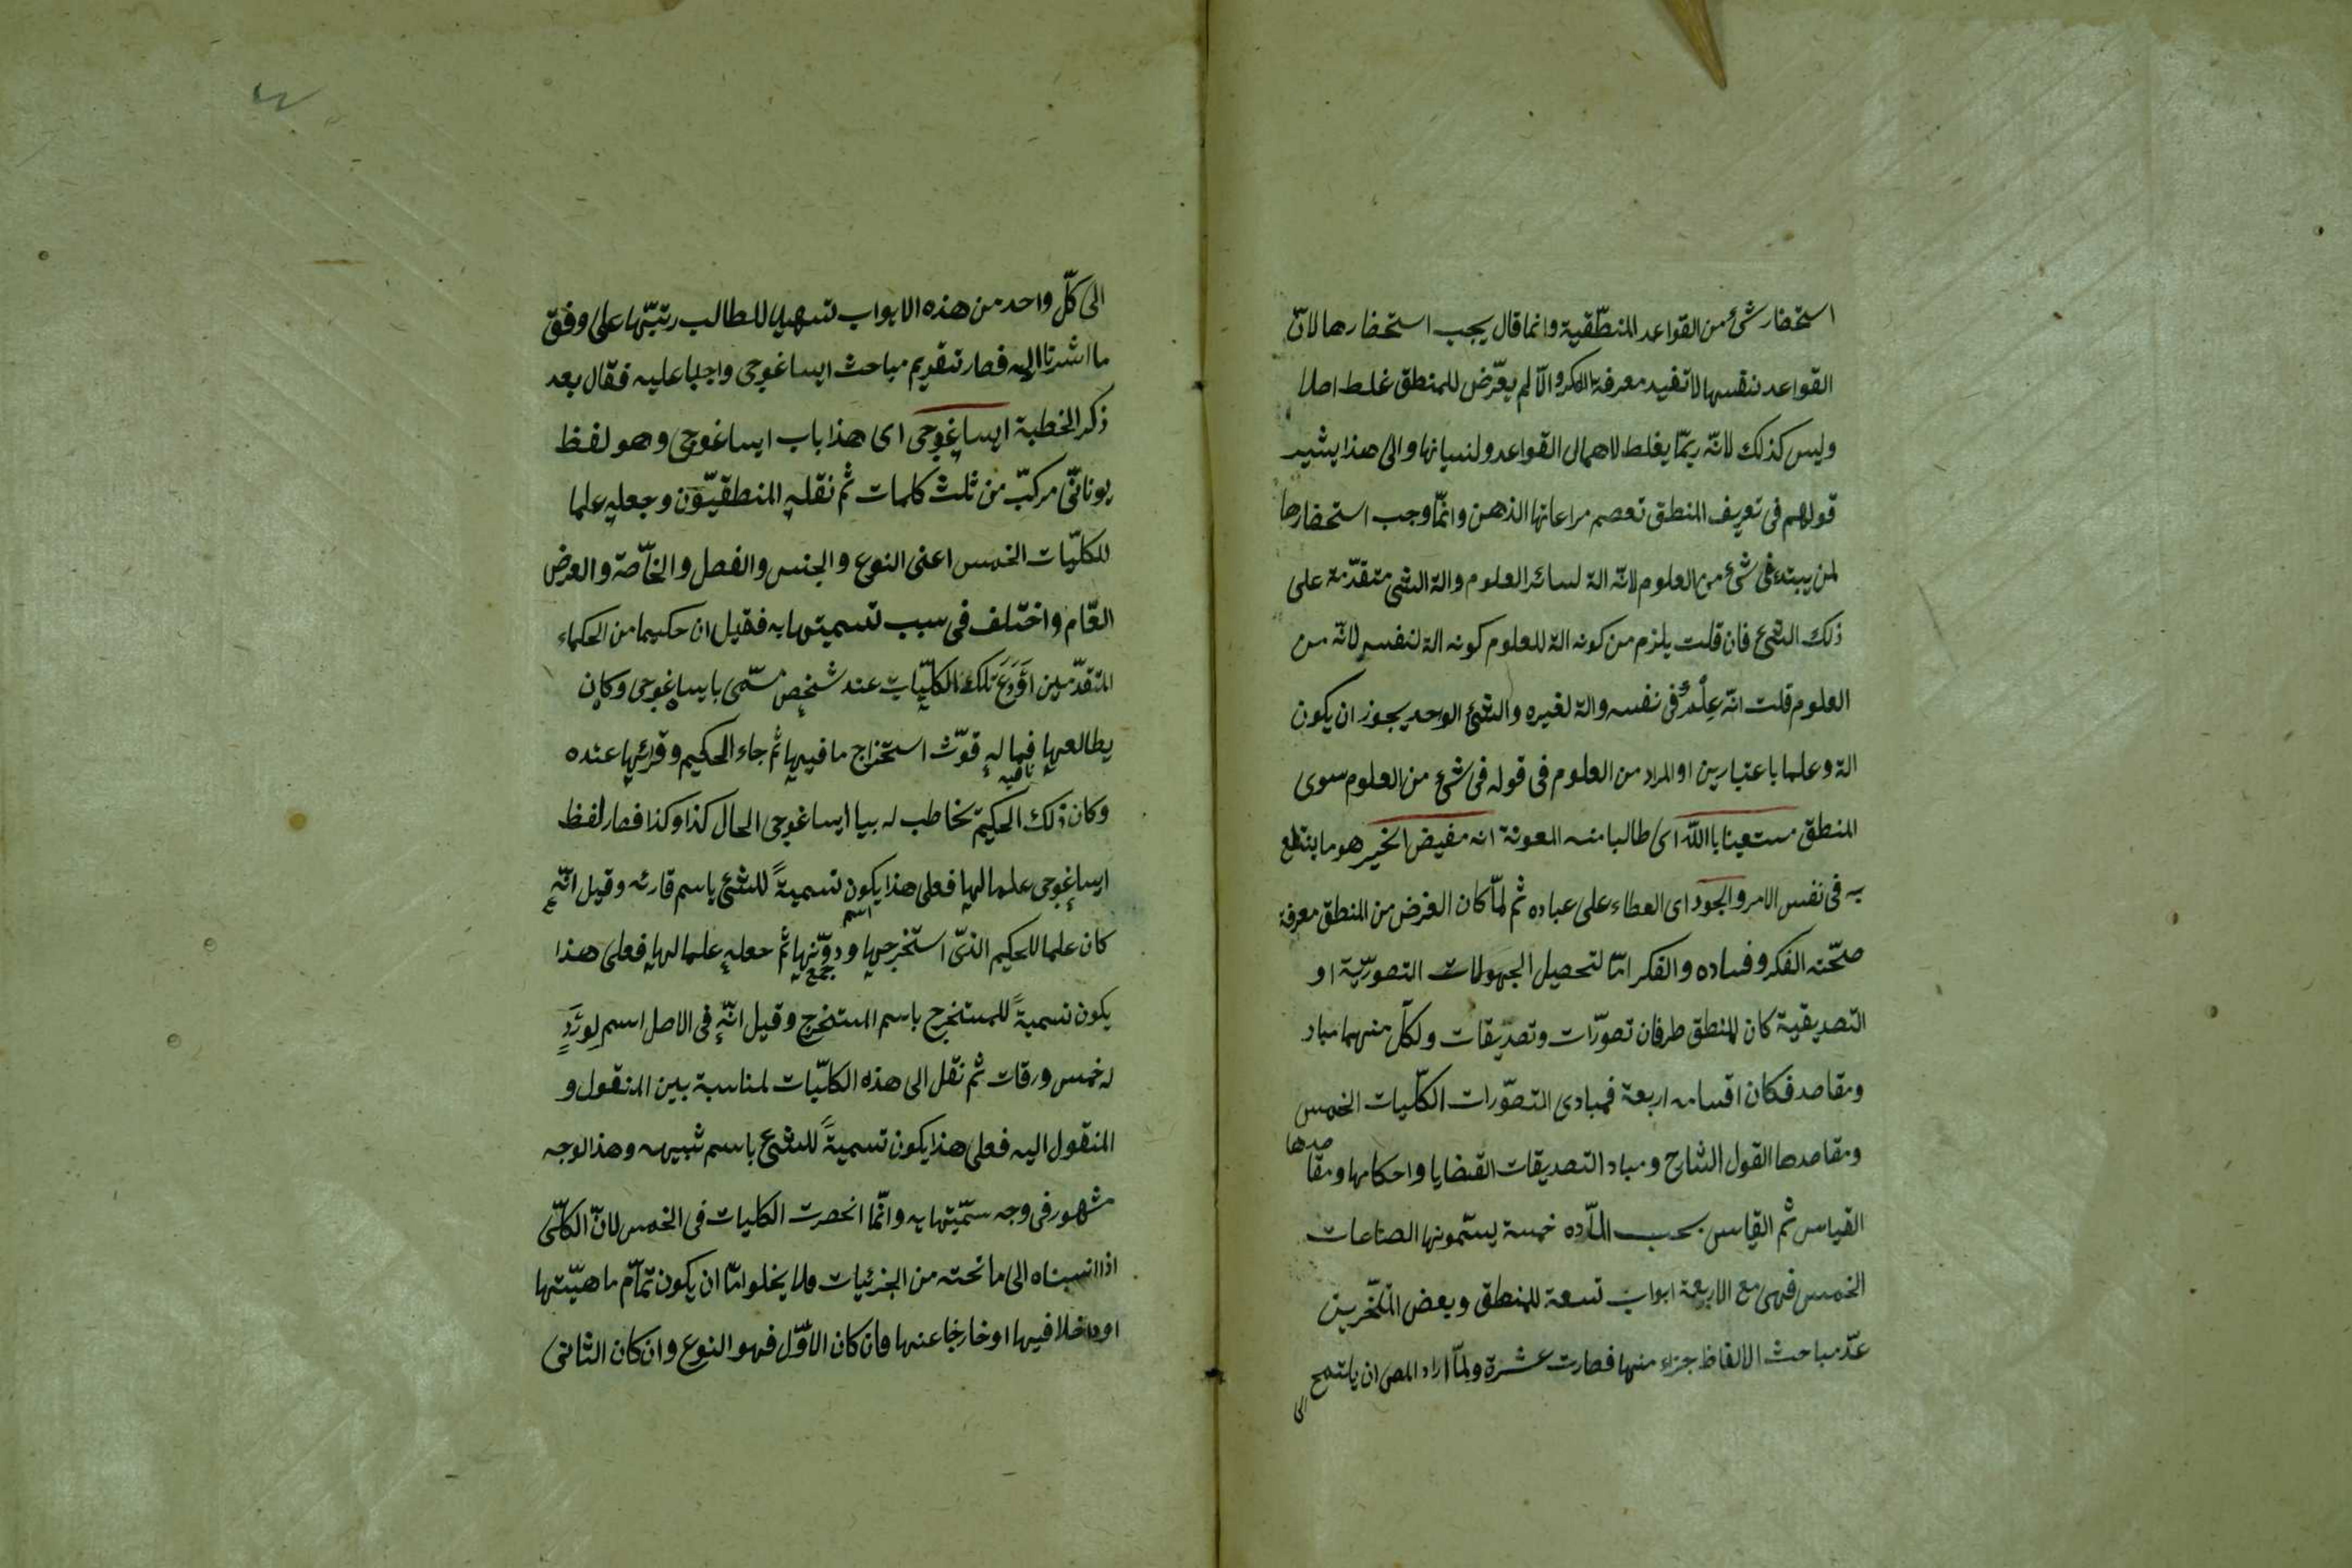 استحضار شئ من القواعد المنطقية وانما قال يجب استحضارها لانّ
القواعد نفسها لا تفيد معرفة الفكر والّا لم يعرض للمنطق غلط اصلا
وليس كذلك لانّه ربمّا يغلط لاهمال القواعد ولنسيانها والى هذا يشير
قولهم فى تعريف المنطق تعصم مراعاتها الذهن وانمّا وجب استحضارها
لمن يبتدء فى شئ من العلوم لانّه الة لسائر العلوم والة الشئ متقدّمة على
ذلك الشئ فان قلت يلزم من كونه الة للعلوم كونه الة لنفسه لانّه من
العلوم قلت انّه عِلْمٌ فى نفسه والة لغيره والشئ الواحد يجوز ان يكون
الة وعلما باعتبارين او المراد من العلوم فى قوله فى شئ من العلوم سوى
المنطق مستعينا باالله اى طالبا منه المعونة انه مفيض الخير هو ما ينتفع
به فى نفس الامر والجود اى العطاء على عباده ثم لمّا كان الغرض من المنطق معرفة
صحّته الفكر وفساده والفكر امّا لتحصيل المجهولات التصوريّة او
التصديقية كان للمنطق طرفان تصوّرات وتصديقات ولكلّ منهما مباد
ومقاصد فكان اقسامه اربعة فمبادى التصوّرات الكلّيات الخمس
ومقاصدها القول الشارح ومباد التصديقات القضايا واحكامها ومقا
صدها
القياس ثم القياس بحسب المادّه خمسة يسمّونها الصناعات
الخمس فهى مع الاربعة ابواب تسعة للمنطق وبعض المتأخرين
عدّ مباحث الالفاظ جزاء منها فصارت عشرة ولمّا اراد المص ان
الى
الى كلّ واحد من هذه الابواب تسهيلا للطالب رتبّها على وفق
ما اشرنا اليه فصار تقديم مباحث ايساغوجى واجبا عليه فقال بعد
ذكر الخطبة ايساغوجى اى هذا باب ايساغوجى وهو لفظ
يونانىّ مركبّ من ثلث كلمات ثم نقله المنطقيّون وجعله علما
للكلّيات الخمس اعنى النوع والجنس والفصل والخاّصة والعرض
العّام واختلف فى سبب تسميتها به فقيل ان حكيما من الحكماء
المتقدّمين اَوْدَعَ تلك الكلّيات عند شخص مسمّى بايساغوجى وكان
يطالعها فما له قوّت استخراج ما فيها ثم جاء الحكيم وقرئها عنده
نافيه
وكان ذلك الحكيم يخاطب له بيا ايساغوجى الحال كذا وكذا فصار لفظ
ايساغوجى علما لها فعلى هذا يكون تسميةً للشئ باسم قارئه وقيل انّه
اسم
كان علما للحكيم الذىّ استخرجها ودوّنها ثم جعله علما لها فعلى هذا
جمع
يكون تسميةً للمستخرج باسم المستخرج وقيل انّه فى الاصل اسم لِوَرْدٍ
له خمس ورقات ثم نقل الى هذه الكلّيات لمناسبة بين المنقول و
المنقول اليه فعلى هذا يكون تسميةً للشئ باسم شبيهه وهذا الوجه
مشهور فى وجه سمّيتها به وانّما انحصرت الكليات فى الخمس لانّ الكلّى
اذا انسبناه الى ما تحته من الجزئيات ولا يخلوا امّا ان يكون تمام ماهيّتها
او داخلا فيها او خارجا عنها فان كان الاوّل فهو النوع وان كان الثانى